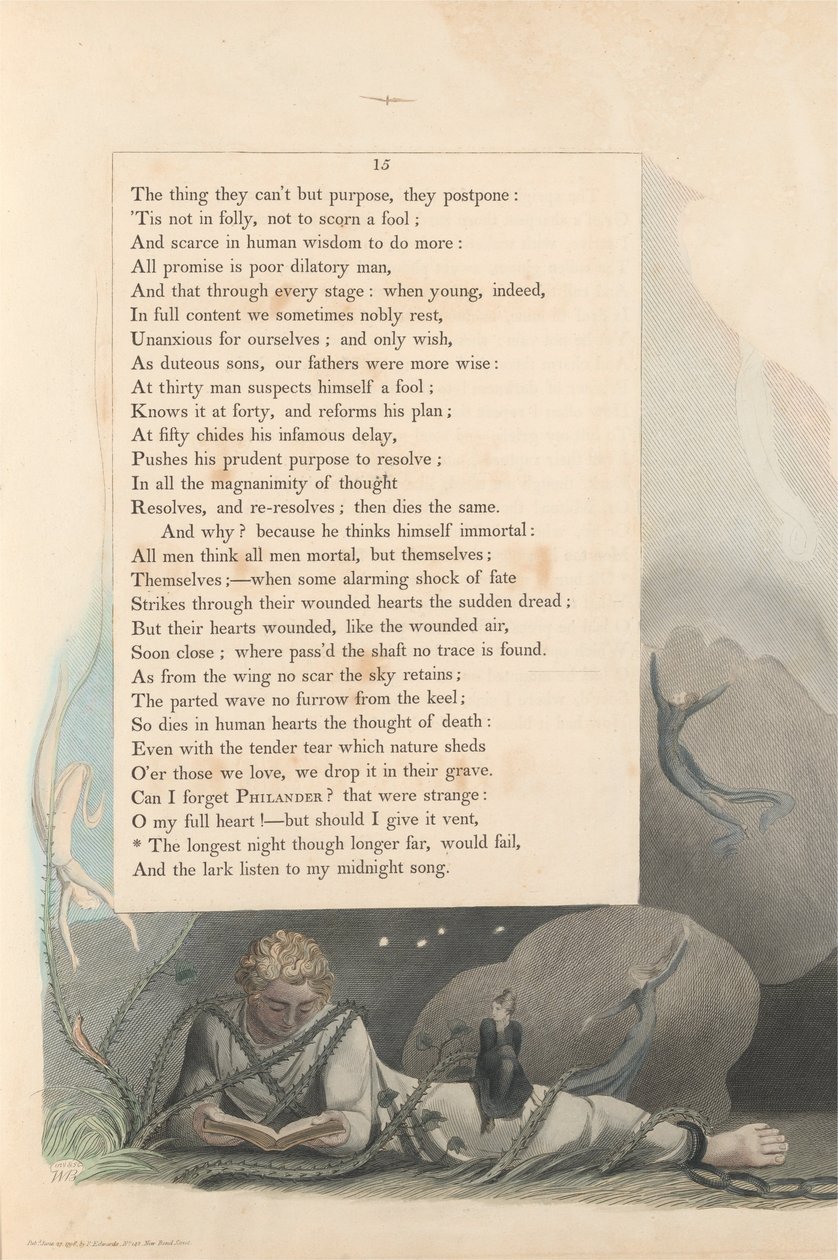 15
The thing they can't but purpose, they postpone :
'Tis not in folly, not to scorn a fool ;
And scarce in human wisdom to do more :
All promise is poor dilatory man,
And that through every stage : when young, indeed,
In full content we sometimes nobly rest,
Unanxious for ourselves ; and only wish,
As duteous sons, our fathers were more wise :
At thirty man suspects himself a fool ;
Knows it at forty, and reforms his plan ;
At fifty chides his infamous delay,
Pushes his prudent purpose to resolve ;
In all the magnanimity of thought
Resolves, and re-resolves ; then dies the same.
And why ? because he thinks himself immortal :
All men think all men mortal, but themselves ;
Themselves ;—when some alarming shock of fate
Strikes through their wounded hearts the sudden dread ;
But their hearts wounded, like the wounded air,
Soon close ; where pass'd the shaft no trace is found.
As from the wing no scar the sky retains ;
The parted wave no furrow from the keel ;
So dies in human hearts the thought of death :
Even with the tender tear which nature sheds
O'er those we love, we drop it in their grave.
Can I forget PHILANDER ? that were strange :
O my full heart !—but should I give it vent,
* The longest night though longer far, would fail,
And the lark listen to my midnight song.
WB
Pub.d June 27, 1796, by R. Edwards, No. 142, New Bond Street.